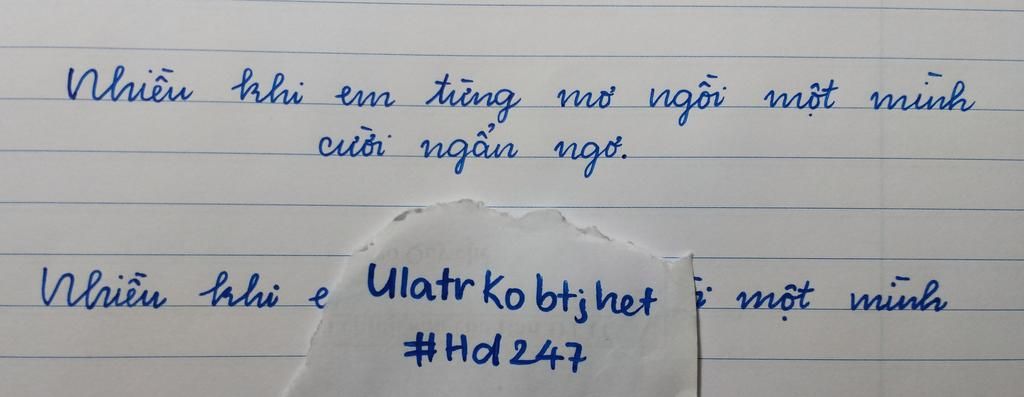 Nhiều khi em từng mơ ngồi một mình
cười ngẩn ngơ.
Nhiều khi một mình
Ulatr Ko btj het
#Hd247